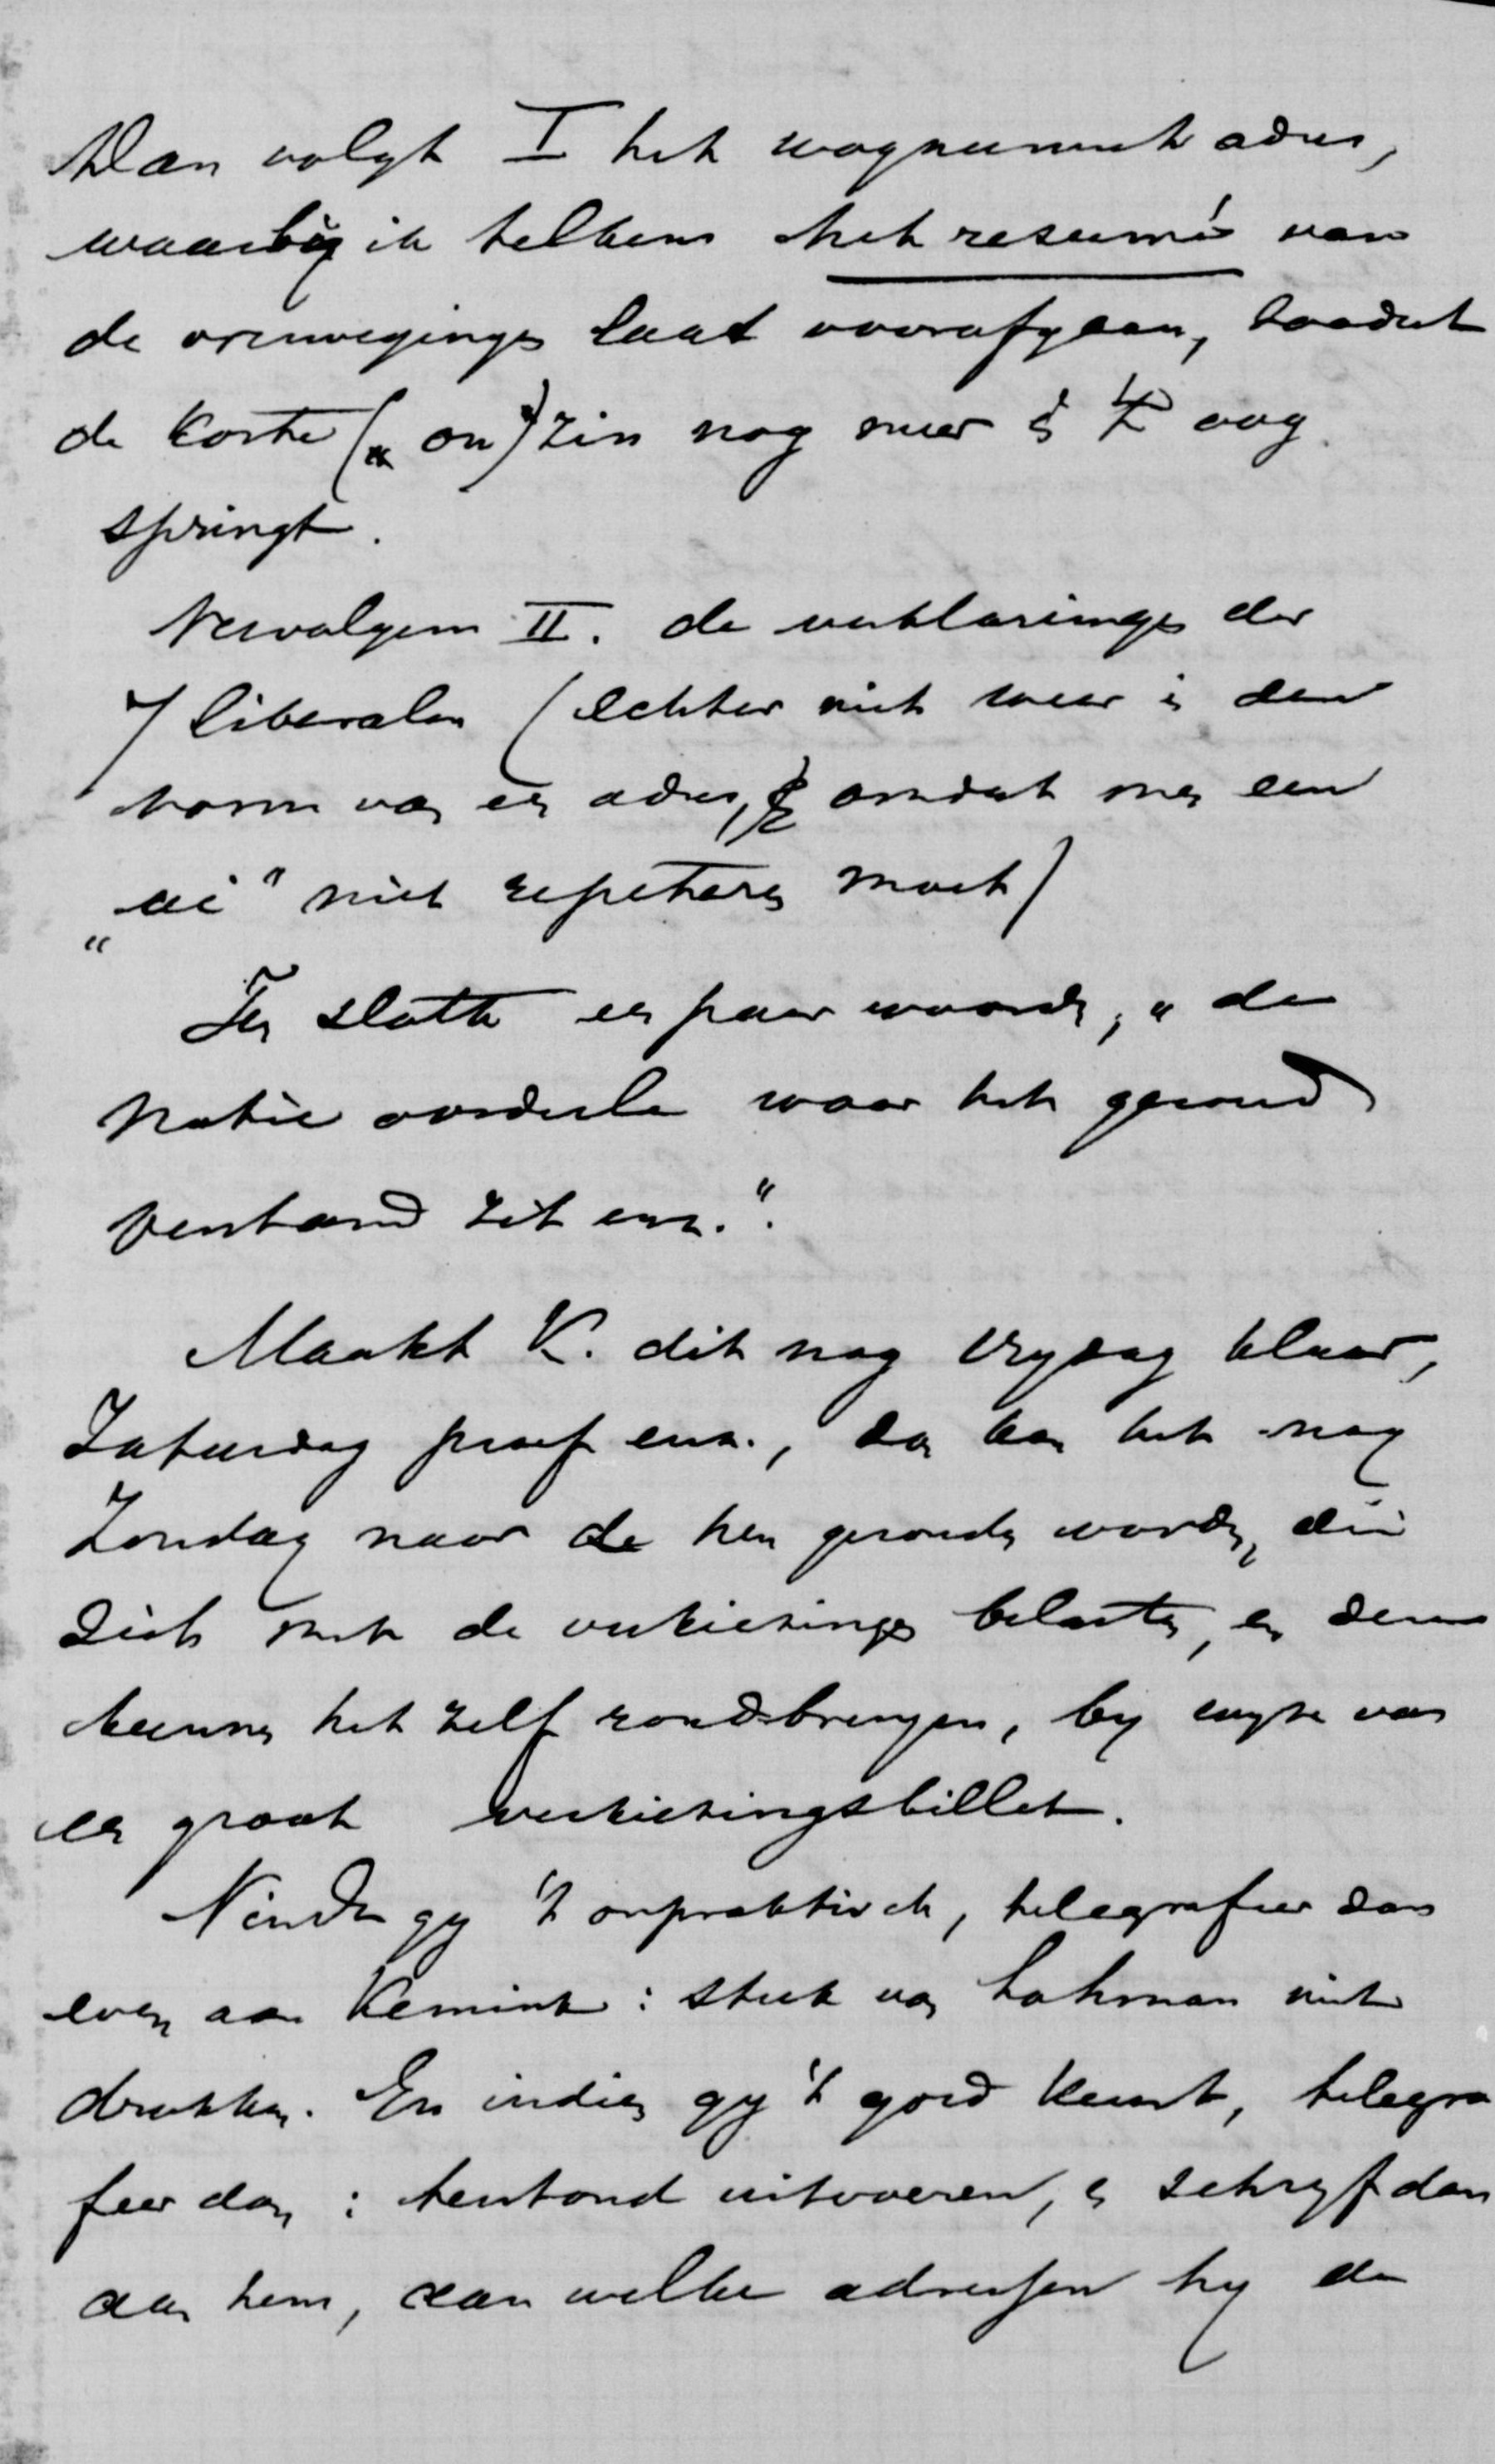 Dan volgt I het wagnummet adres,
waarbij ik telkens het resumé van
de overwegingen laat voorafgaan, zoodat
de korte (on) zin nog meer in 't oog
springt.
Vervolgens II. de verklaringen der
7 liberalen (echter niet weer in den
vorm van een adres, omdat men een
„ui" niet repeteren moet)
Ten slotte een paar woorden, „de
natie oordeele waar het gezond
verstand zit enz.".
Maakt K. dit nog Vrydag klaar,
Zaturdag proef enz., dan kan het nog
Zondag naar de hen gezonden worden, die
zich met de verkiezingen belasten, en deze
kunnen het zelf rondbrengen, by wyze van
een groot verkiezingsbillet.
Vindt gy 't onpraktisch, telegrafeer dan
even aan Kemink: stuk van Lohman niet
drukken. En indien gy 't goed keurt, telegra
feer dan: terstond uitvoeren, en schryf dan
aan hem, aan welke adressen hy de